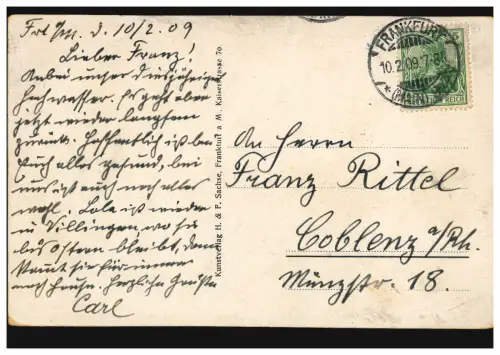 Frt a/M. d. 10/2.09
Lieber Franz!
Anbei unser diesjähriges
Hochwasser. Es geht aber
jetzt wieder langsam
zurück. Hoffentlich ist bei
Euch alles gesund, bei
uns ist auch noch alles
wohl. Lola ist wieder
in Villingen, wo sie
bis Ostern bleibt, dann
kommt sie für immer
nach Hause. Herzliche Grüße
Carl
Kunstverlag H. & F. Sachse, Frankfurt a M. Kaiserstrasse 70.
FRANKFURT
10.2.09.7-8
* (MAIN)
5
REICH
An Herrn
Franz Rittel
Coblenz a/Rh.
Münzstr. 18.